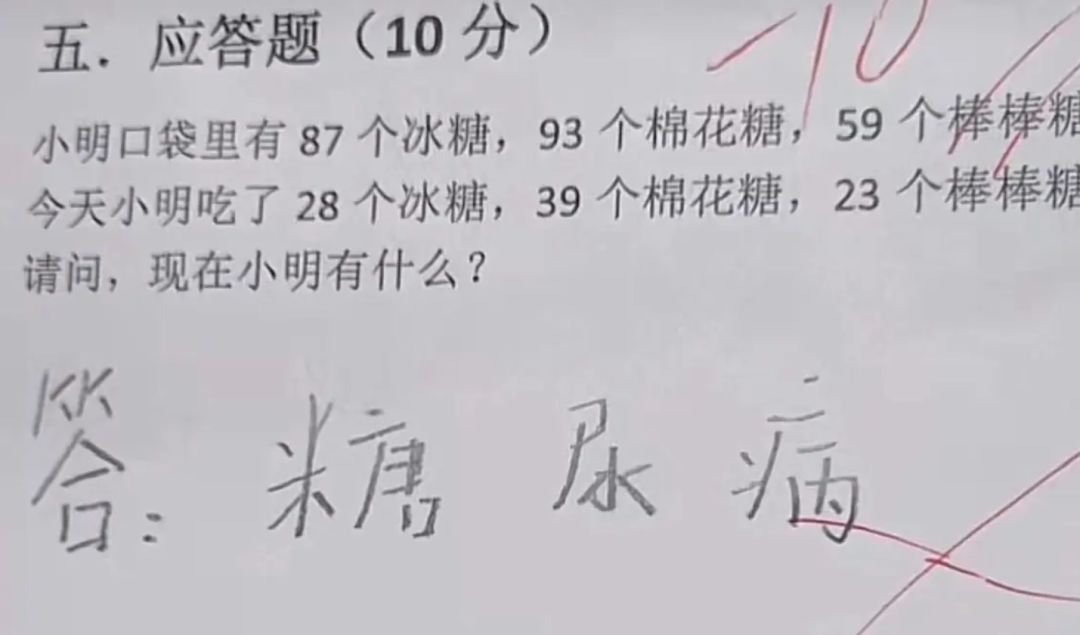 五. 应答题（10 分）
-10
小明口袋里有 87 个冰糖，93 个棉花糖，59 个棒棒糖
今天小明吃了 28 个冰糖，39 个棉花糖，23 个棒棒糖
请问，现在小明有什么？
答：糖尿病